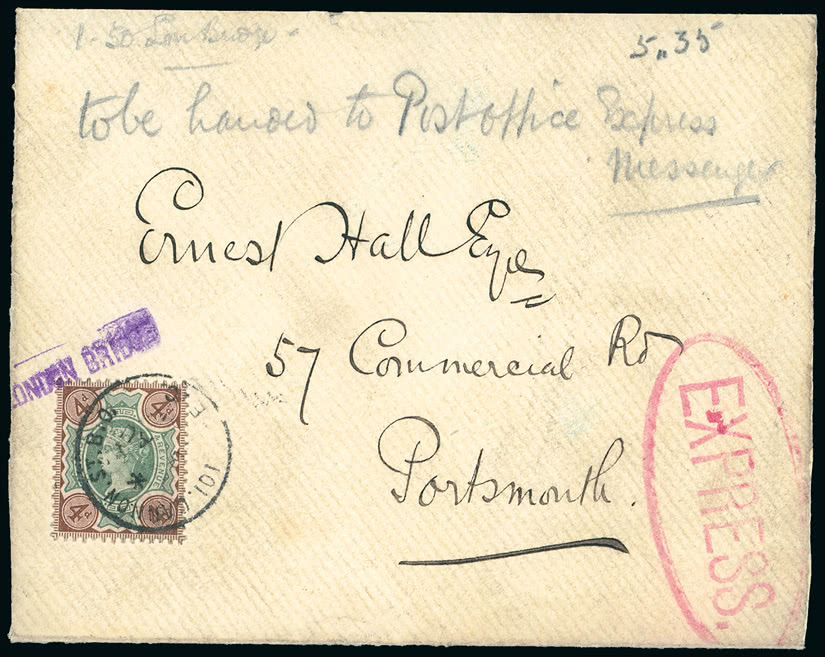 1-50 Lon Bridge -
5,,35
to be handed to Post office Express
Messenger
Ernest Hall Esqre
57 Commercial Rd
Portsmouth.
LONDON BRIDGE
4d 4d
4d
101
EXPRESS.